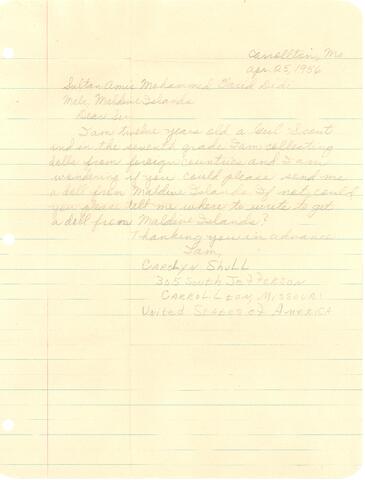 Carrollton, Mo
Apr. 25, 1956
Sultan Amir Mohammed Farid Didi
Male, Maldive Islands
Dear Sir
I am twelve years old a Girl Scout
and in the seventh grade. I am collecting
dolls from foreign countries and I am
wondering if you could please send me
a doll from Maldive Islands. If not, could
you please tell me where to write to get
a doll from Maldive Islands?
Thanking you in advance
I am,
Carolyn Shull
305 South Jefferson
Carrollton, Missouri
United States of America